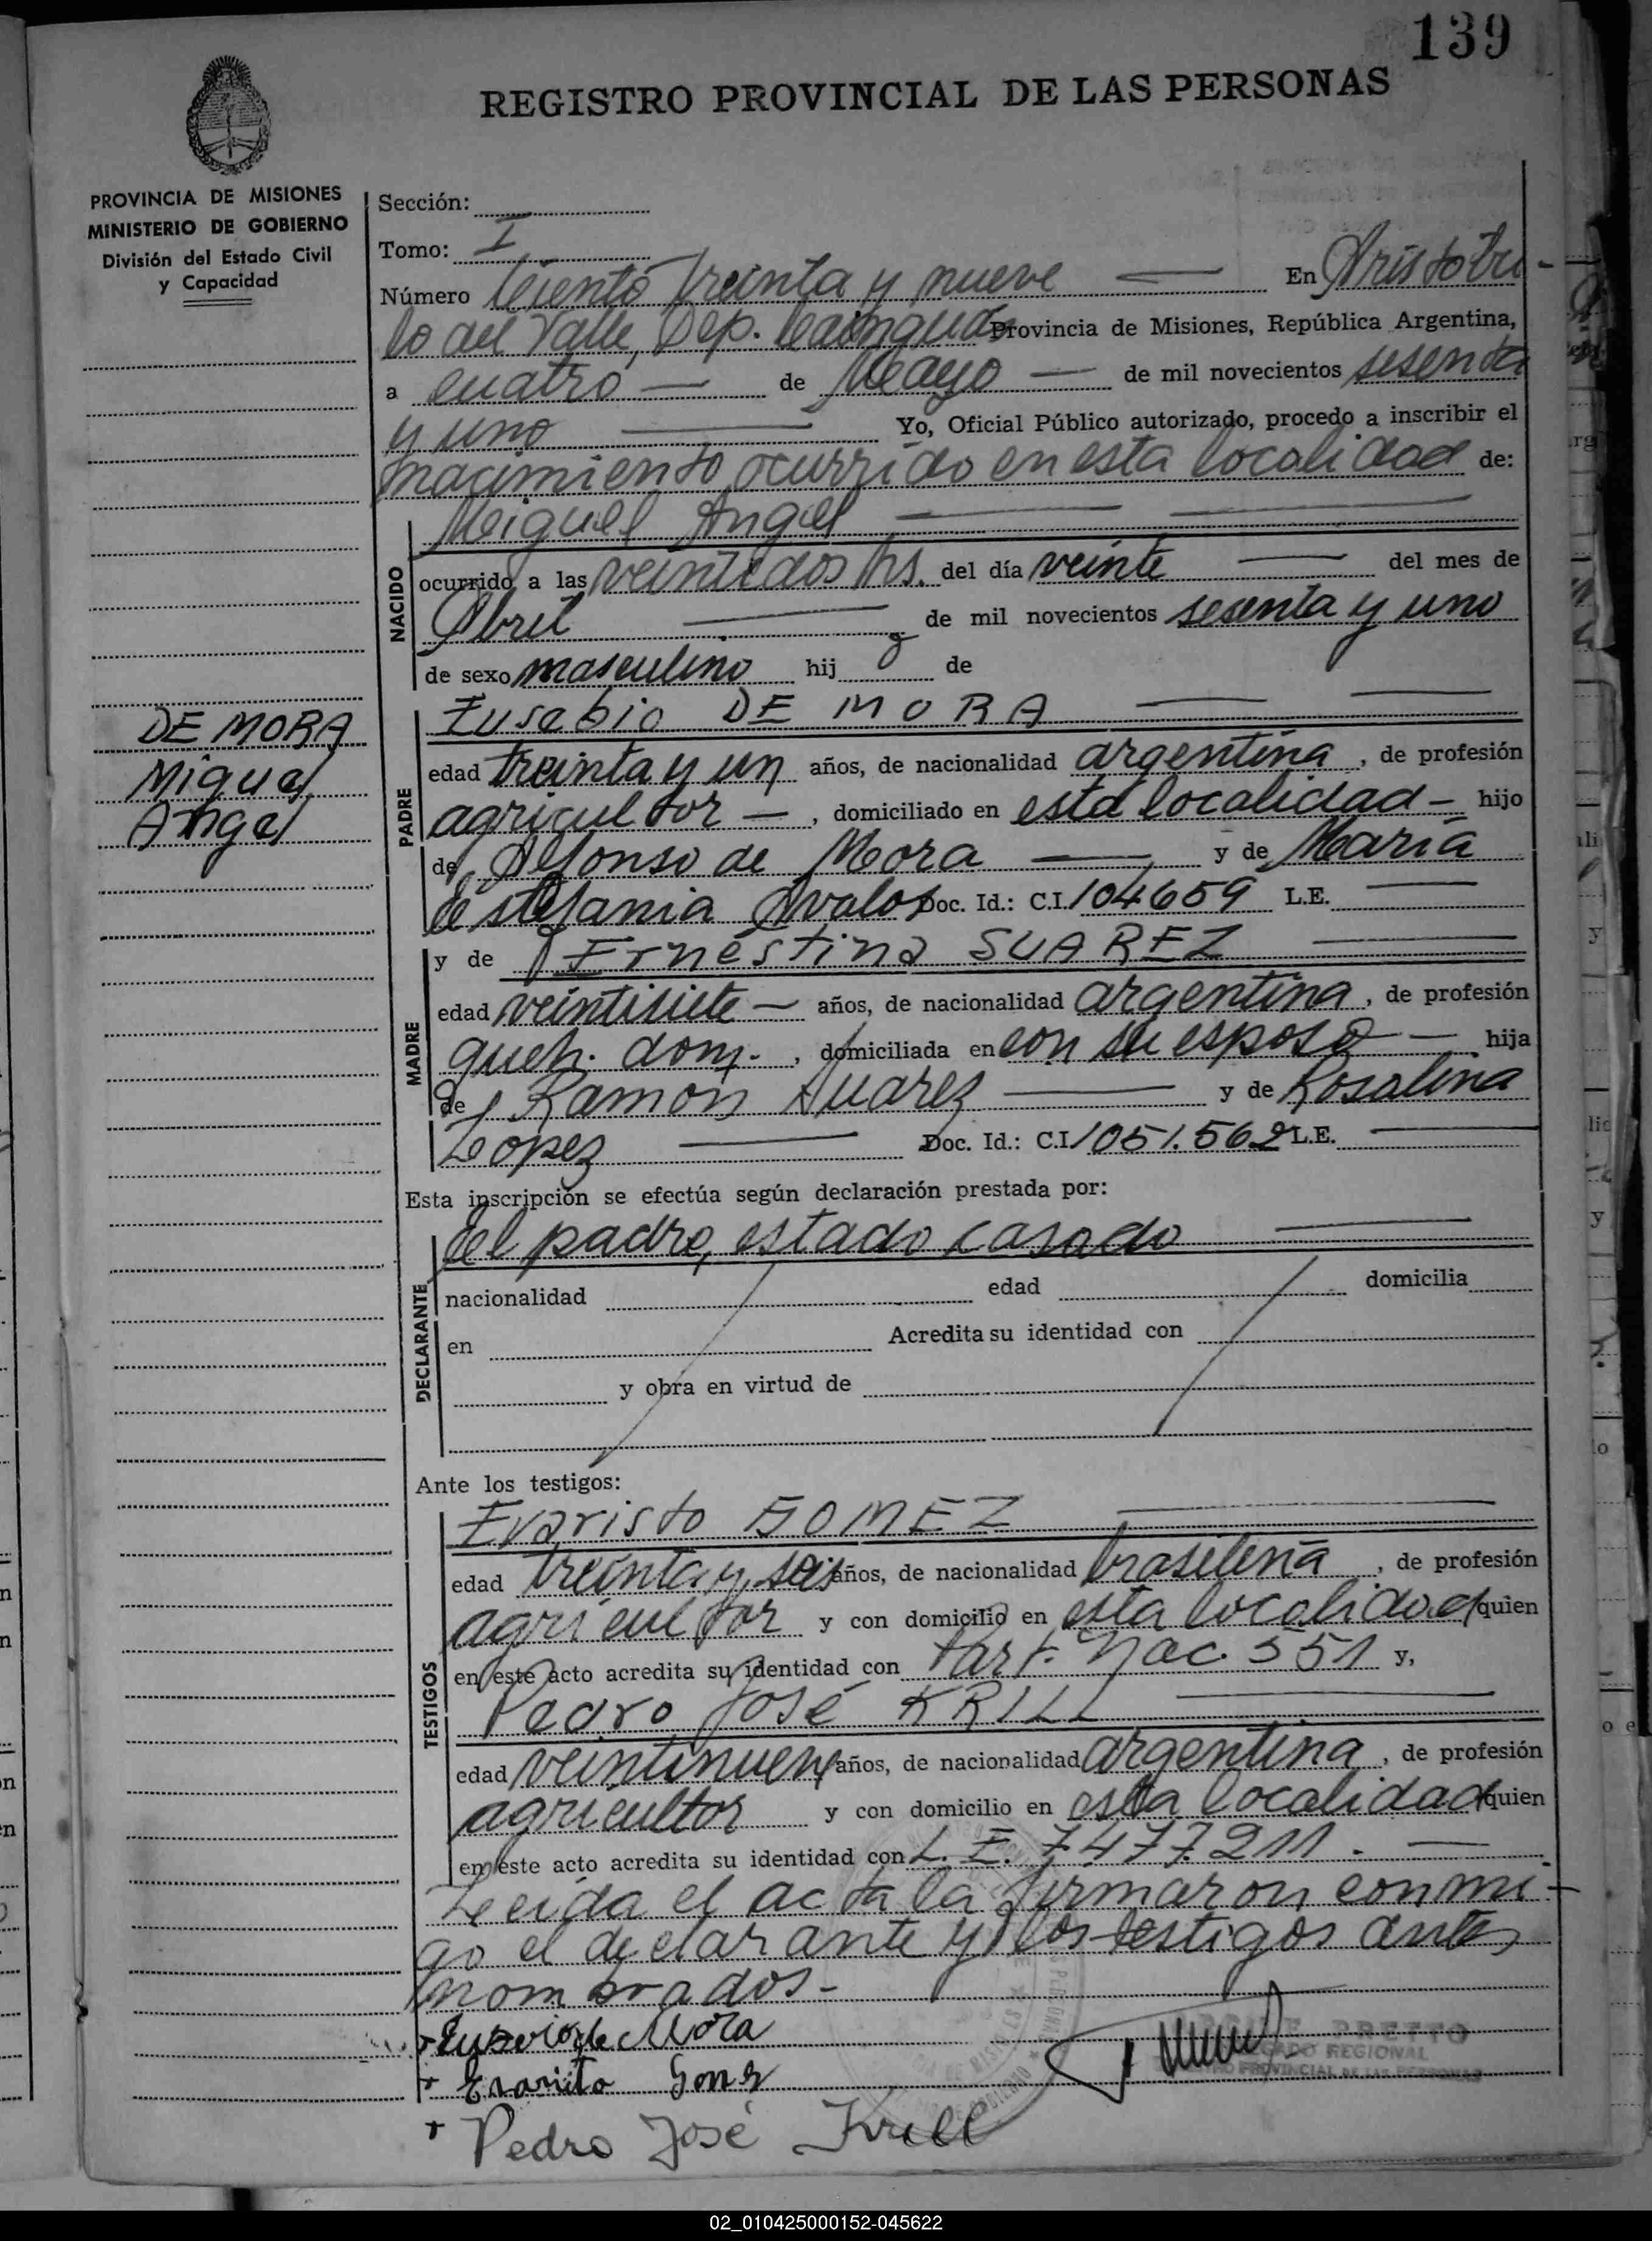 139
REGISTRO PROVINCIAL DE LAS PERSONAS
PROVINCIA DE MISIONES
MINISTERIO DE GOBIERNO
División del Estado Civil
y Capacidad
Sección:
Tomo: I
Número Ciento treinta y nueve — En Aristóbu-
lo del Valle, Dep. Cainguás Provincia de Misiones, República Argentina,
a cuatro — de Mayo — de mil novecientos sesenta
y uno — Yo, Oficial Público autorizado, procedo a inscribir el
nacimiento ocurrido en esta localidad de:
NACIDO
Miguel Angel — —
ocurrido a las veintidos hs. del día veinte — del mes de
Abril — de mil novecientos sesenta y uno
de sexo masculino hij o de
DE MORA
Miguel
Angel
PADRE
Eusebio DE MORA — —
edad treinta y un años, de nacionalidad argentina, de profesión
agricultor —, domiciliado en esta localidad — hijo
de Alfonso de Mora — y de María
Estefania Avalos Doc. Id.: C.I. 104659 L.E. —
MADRE
y de Ernestina SUAREZ —
edad veintisiete — años, de nacionalidad argentina, de profesión
queh. dom., domiciliada en con su esposo — hija
de Ramón Suarez — y de Rosalina
Lopez — Doc. Id.: C.I. 1051.562 L.E. —
Esta inscripción se efectúa según declaración prestada por:
DECLARANTE
el padre, estado casado —
nacionalidad edad domicilia
en Acredita su identidad con
y obra en virtud de
Ante los testigos:
TESTIGOS
Evaristo GOMEZ —
edad treinta y seis años, de nacionalidad brasileña, de profesión
agricultor y con domicilio en esta localidad quien
en este acto acredita su identidad con Part. Nac. 551 y,
Pedro José KRILL —
edad veintinueve años, de nacionalidad argentina, de profesión
agricultor y con domicilio en esta localidad quien
en este acto acredita su identidad con L. E. 7.477.211. —
Leída el acta la firmaron conmi-
go el declarante y los testigos antes
nombrados.-
+ Eusevio de Mora
PRETTO
REGIONAL
PROVINCIAL DE LAS PERSONAS
+ Evaristo Gomez
+ Pedro José Krill
02_010425000152-045622